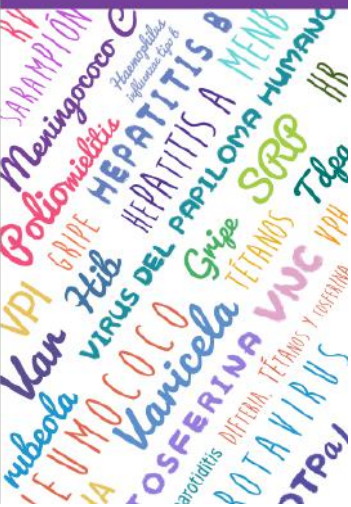 RV
SARAMPIÓN
Meningococo C
Haemophilus
influenzae tipo b
HEPATITIS B
MENB
Poliomielitis
HEPATITIS A
HB
GRIPE
VIRUS DEL PAPILOMA HUMANO
SRP
Tdpa
VPI
Hib
Gripe
TÉTANOS
VPH
Var
VNC
rubeola
NEUMOCOCO
Varicela
TOSFERINA
DIFTERIA, TÉTANOS Y TOSFERINA
parotiditis
ROTAVIRUS
DTPa/